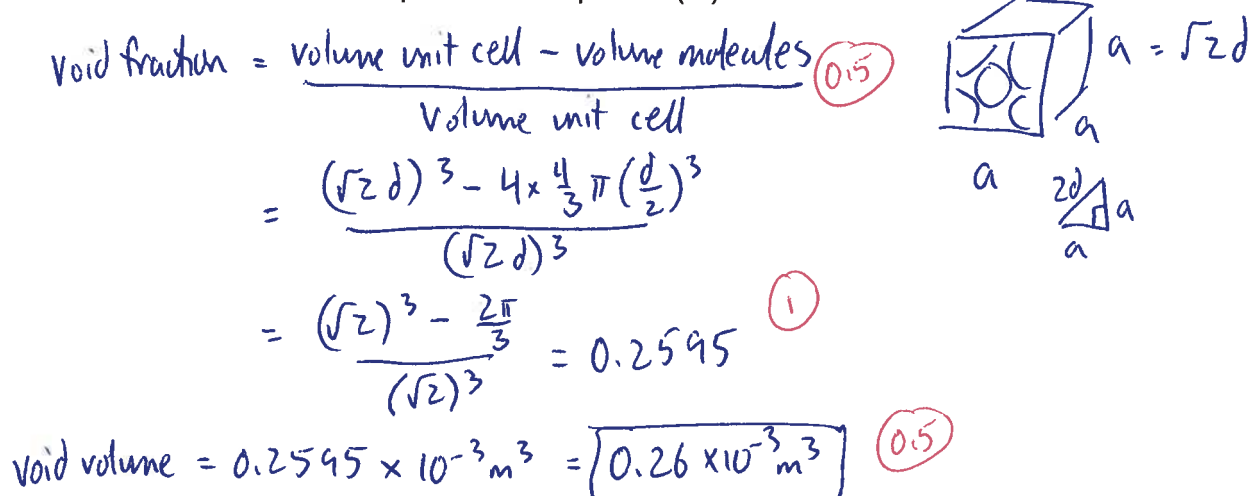 void fraction = volume unit cell - volume molecules / volume unit cell (0.5)
a = √2d
a
a
2d a
a
= (√2d)³ - 4 × 4/3 π (d/2)³ / (√2d)³
= (√2)³ - 2π/3 / (√2)³ = 0.2595 (1)
void volume = 0.2595 × 10⁻³ m³ = 0.26 × 10⁻³ m³ (0.5)